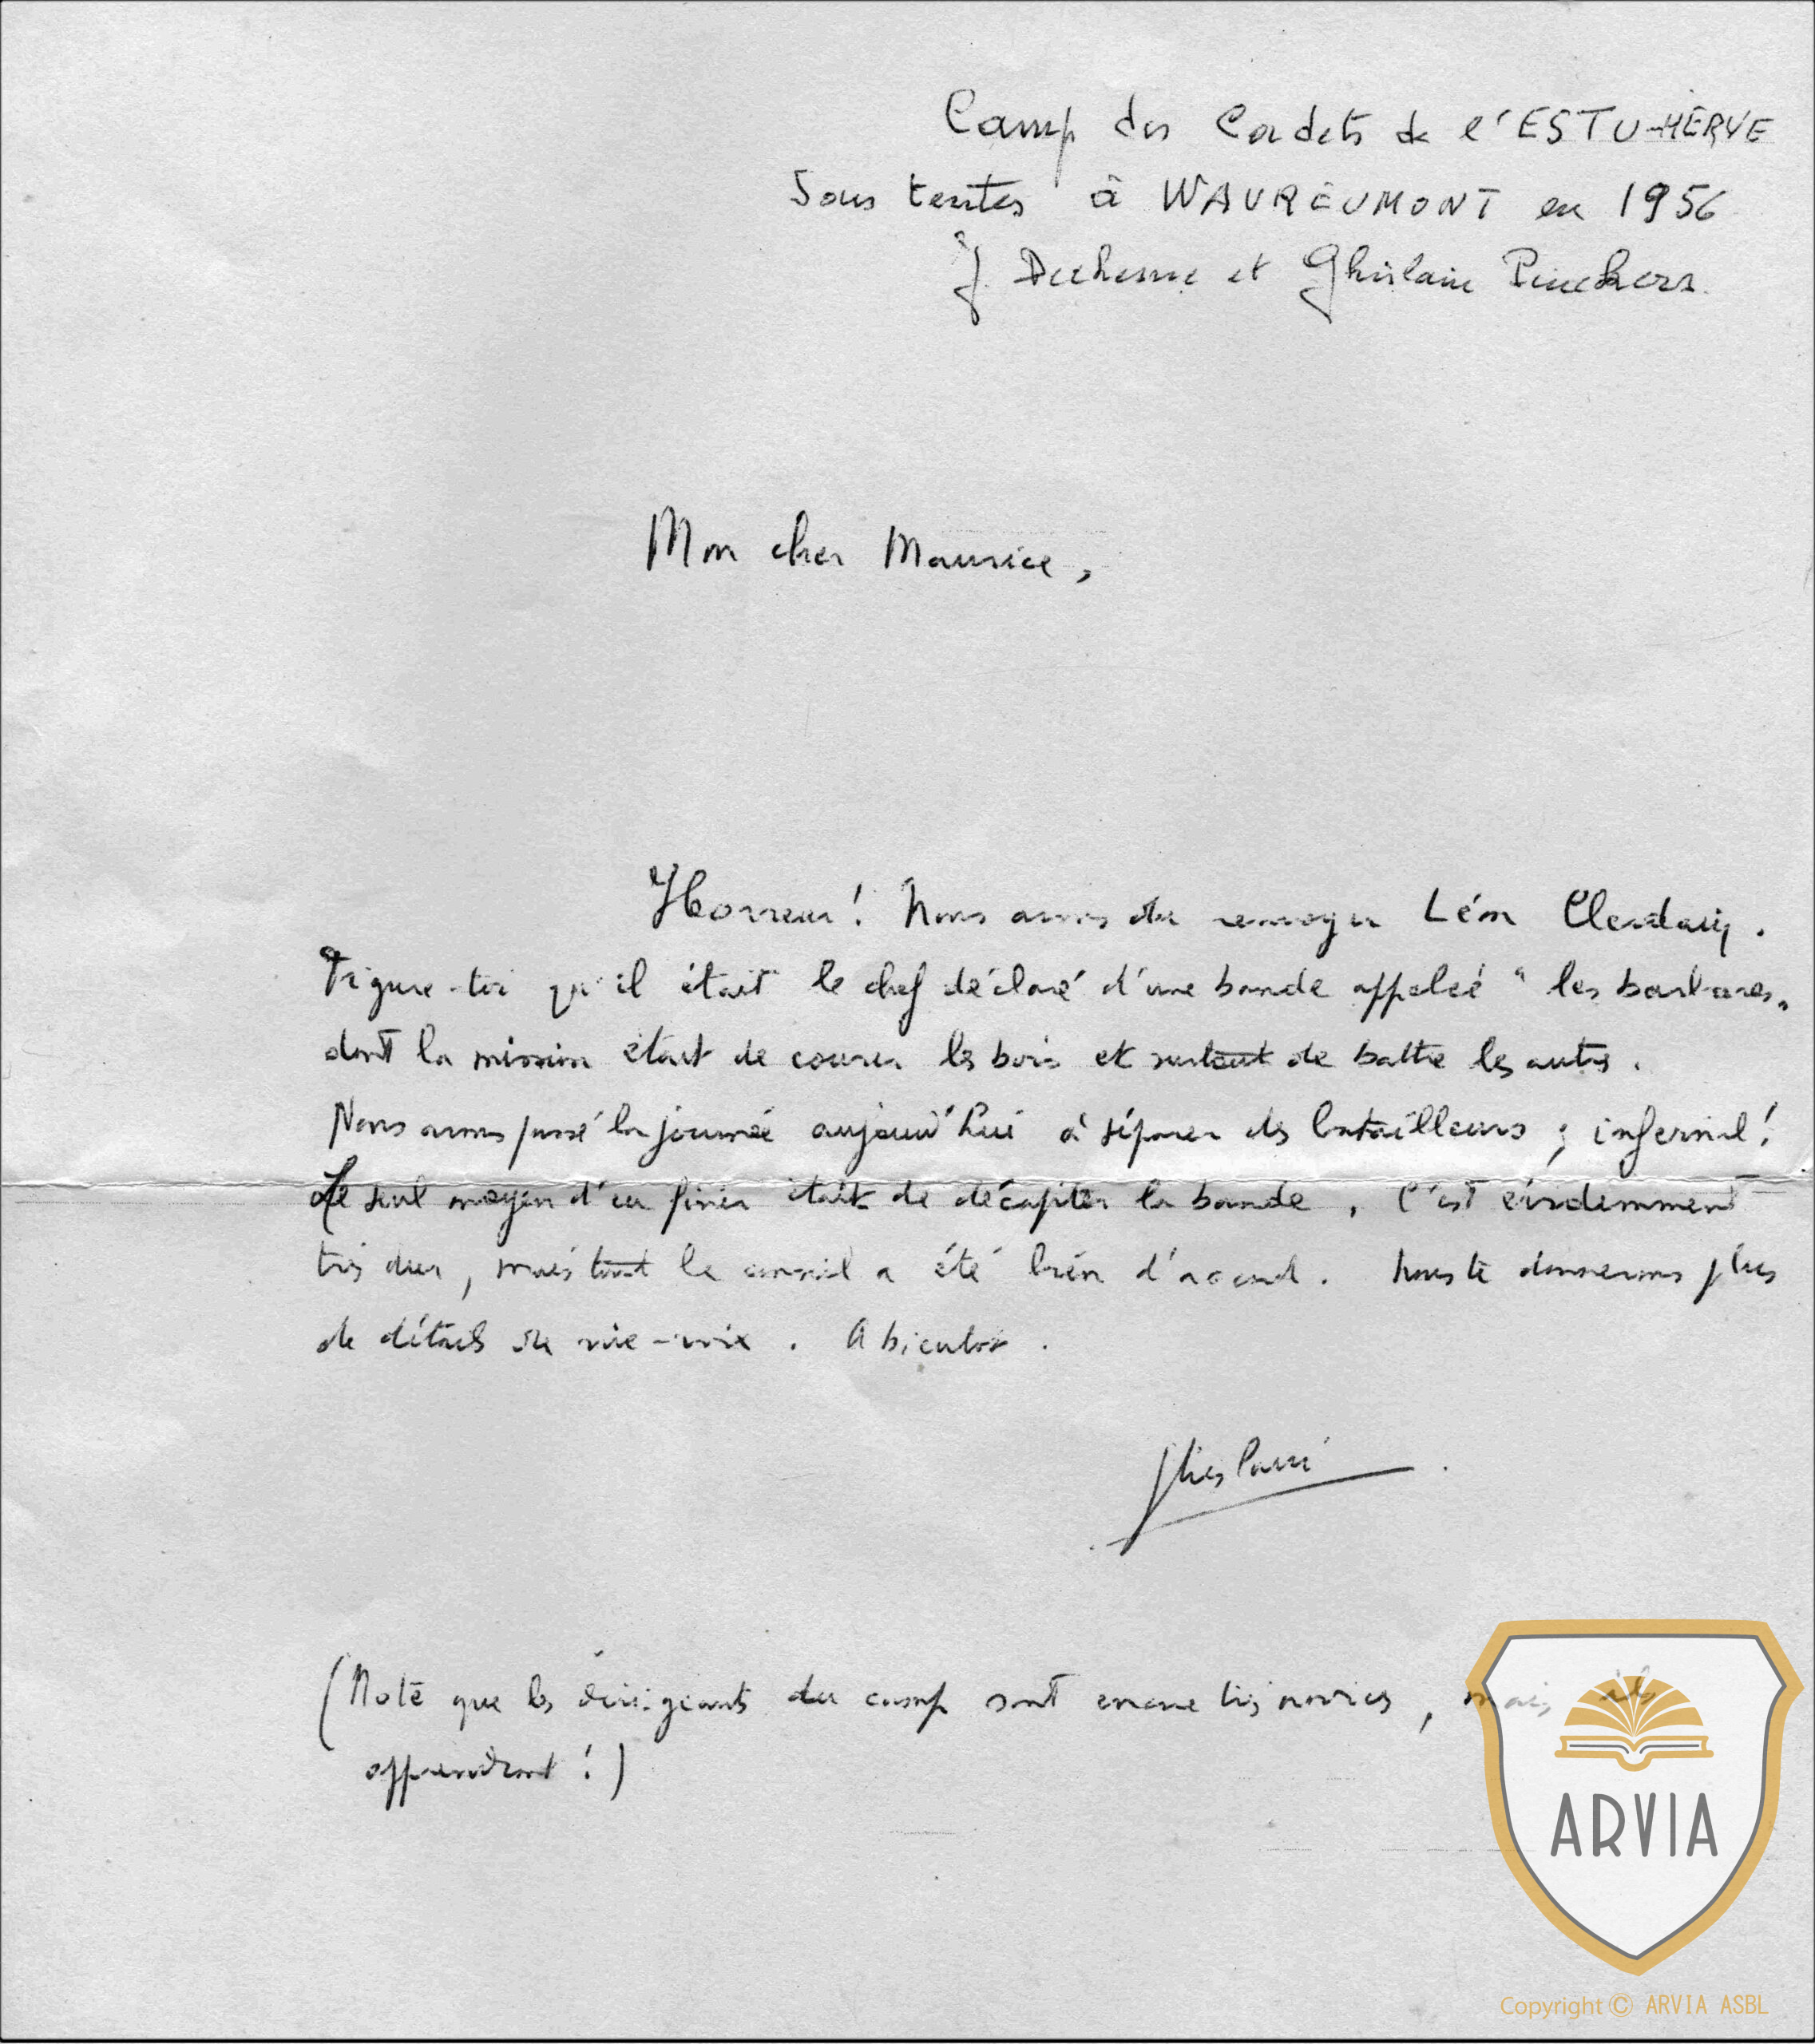 Camp des Cadets de l'ESTU-HERVE
Sous tentes à WAVREUMONT en 1956
J. Duchesne et Ghislain Pinckers.
Mon cher Maurice,
Horreur ! Nous avons du renvoyer Léon
Figure-toi qu'il était le chef déclaré d'une bande appelée "les barbares"
dont la mission était de courir les bois et surtout de battre les autres.
Nous avons passé la journée aujourd'hui à séparer des batailleurs ; infernal !
Le seul moyen d'en finir était de décapiter la bande, c'est évidemment
très dur, mais tout le conseil a été bien d'accord. Nous te donnerons plus
de détails de vive-voix. A bientôt.
Ghislain
(Note que les dirigeants du camp sont encore très novices, mais ils
apprendront !)
ARVIA
Copyright © ARVIA ASBL